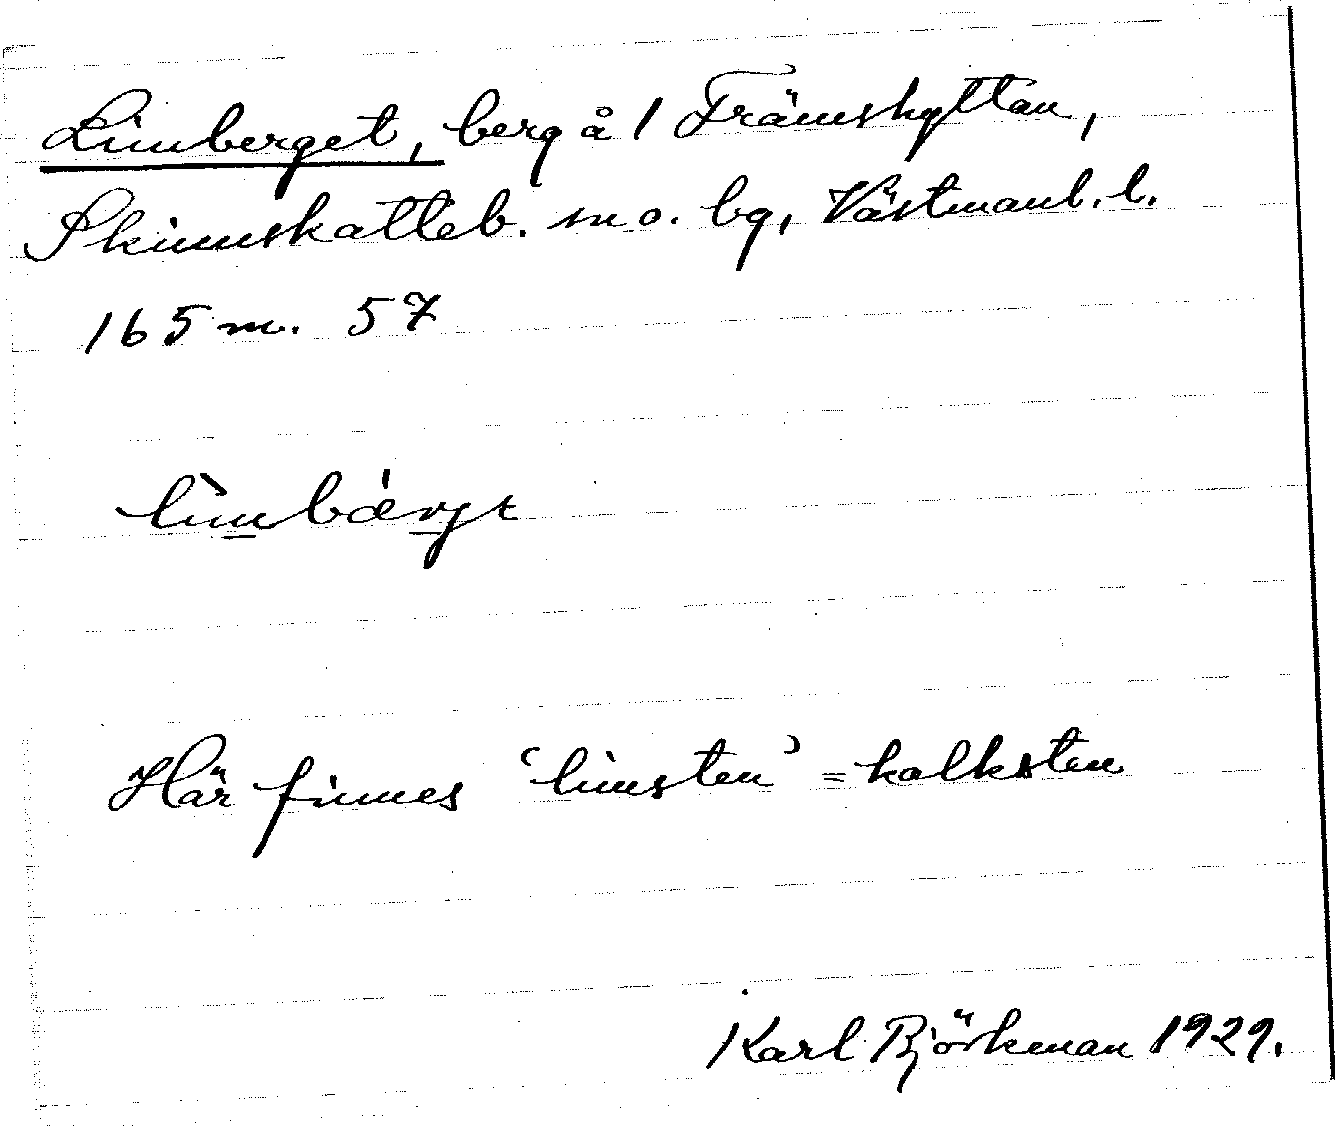 Limberget, berg å 1 Främshyttan,
Skinnskatteb. sn o. bg, Västmanl. l.
165 m. 57
lìmbáryt
Här finnes 'limsten' = kalksten
Karl Björkman 1929.